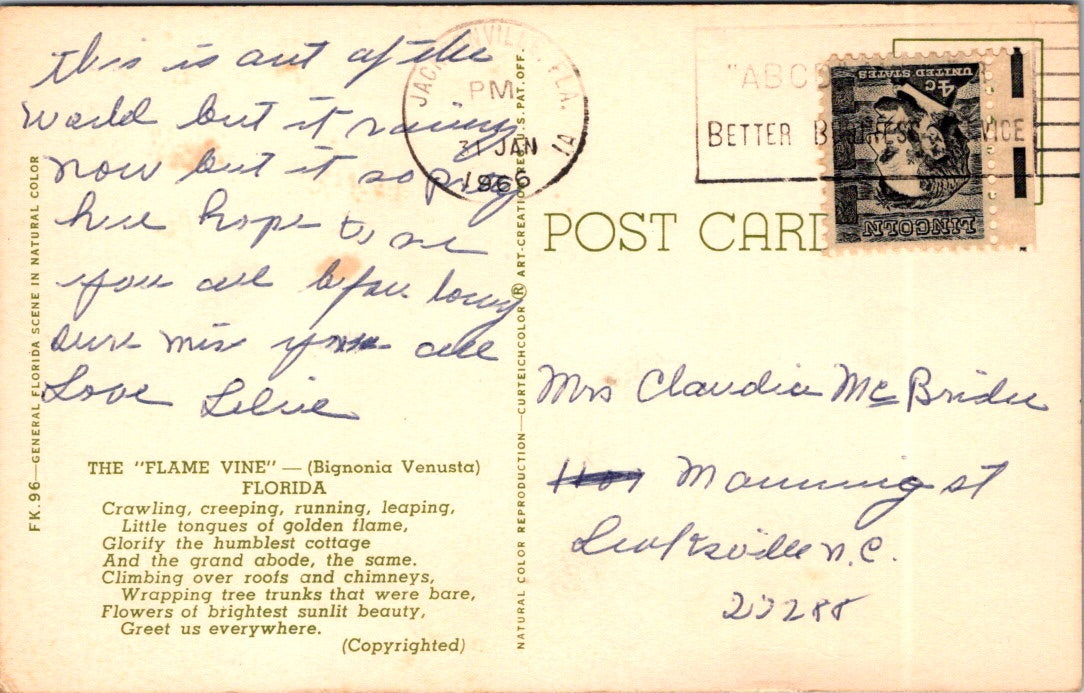 this is out of the
world but it raining
now but it so pretty
here hope to see
you all before long
sure miss you all
Love Lillie
THE "FLAME VINE" — (Bignonia Venusta)
FLORIDA
Crawling, creeping, running, leaping,
Little tongues of golden flame,
Glorify the humblest cottage
And the grand abode, the same.
Climbing over roofs and chimneys,
Wrapping tree trunks that were bare,
Flowers of brightest sunlit beauty,
Greet us everywhere.
(Copyrighted)
FK.96—GENERAL FLORIDA SCENE IN NATURAL COLOR
NATURAL COLOR REPRODUCTION—CURTEICHCOLOR ® ART-CREATION REG. U.S. PAT. OFF.
FLA.
PM
31 JAN
1966
1A
BETTER
POST CARD
4c
UNITED STATES
LINCOLN
Mrs Claudia McBride
Manning st
Leaksville N.C.
27288